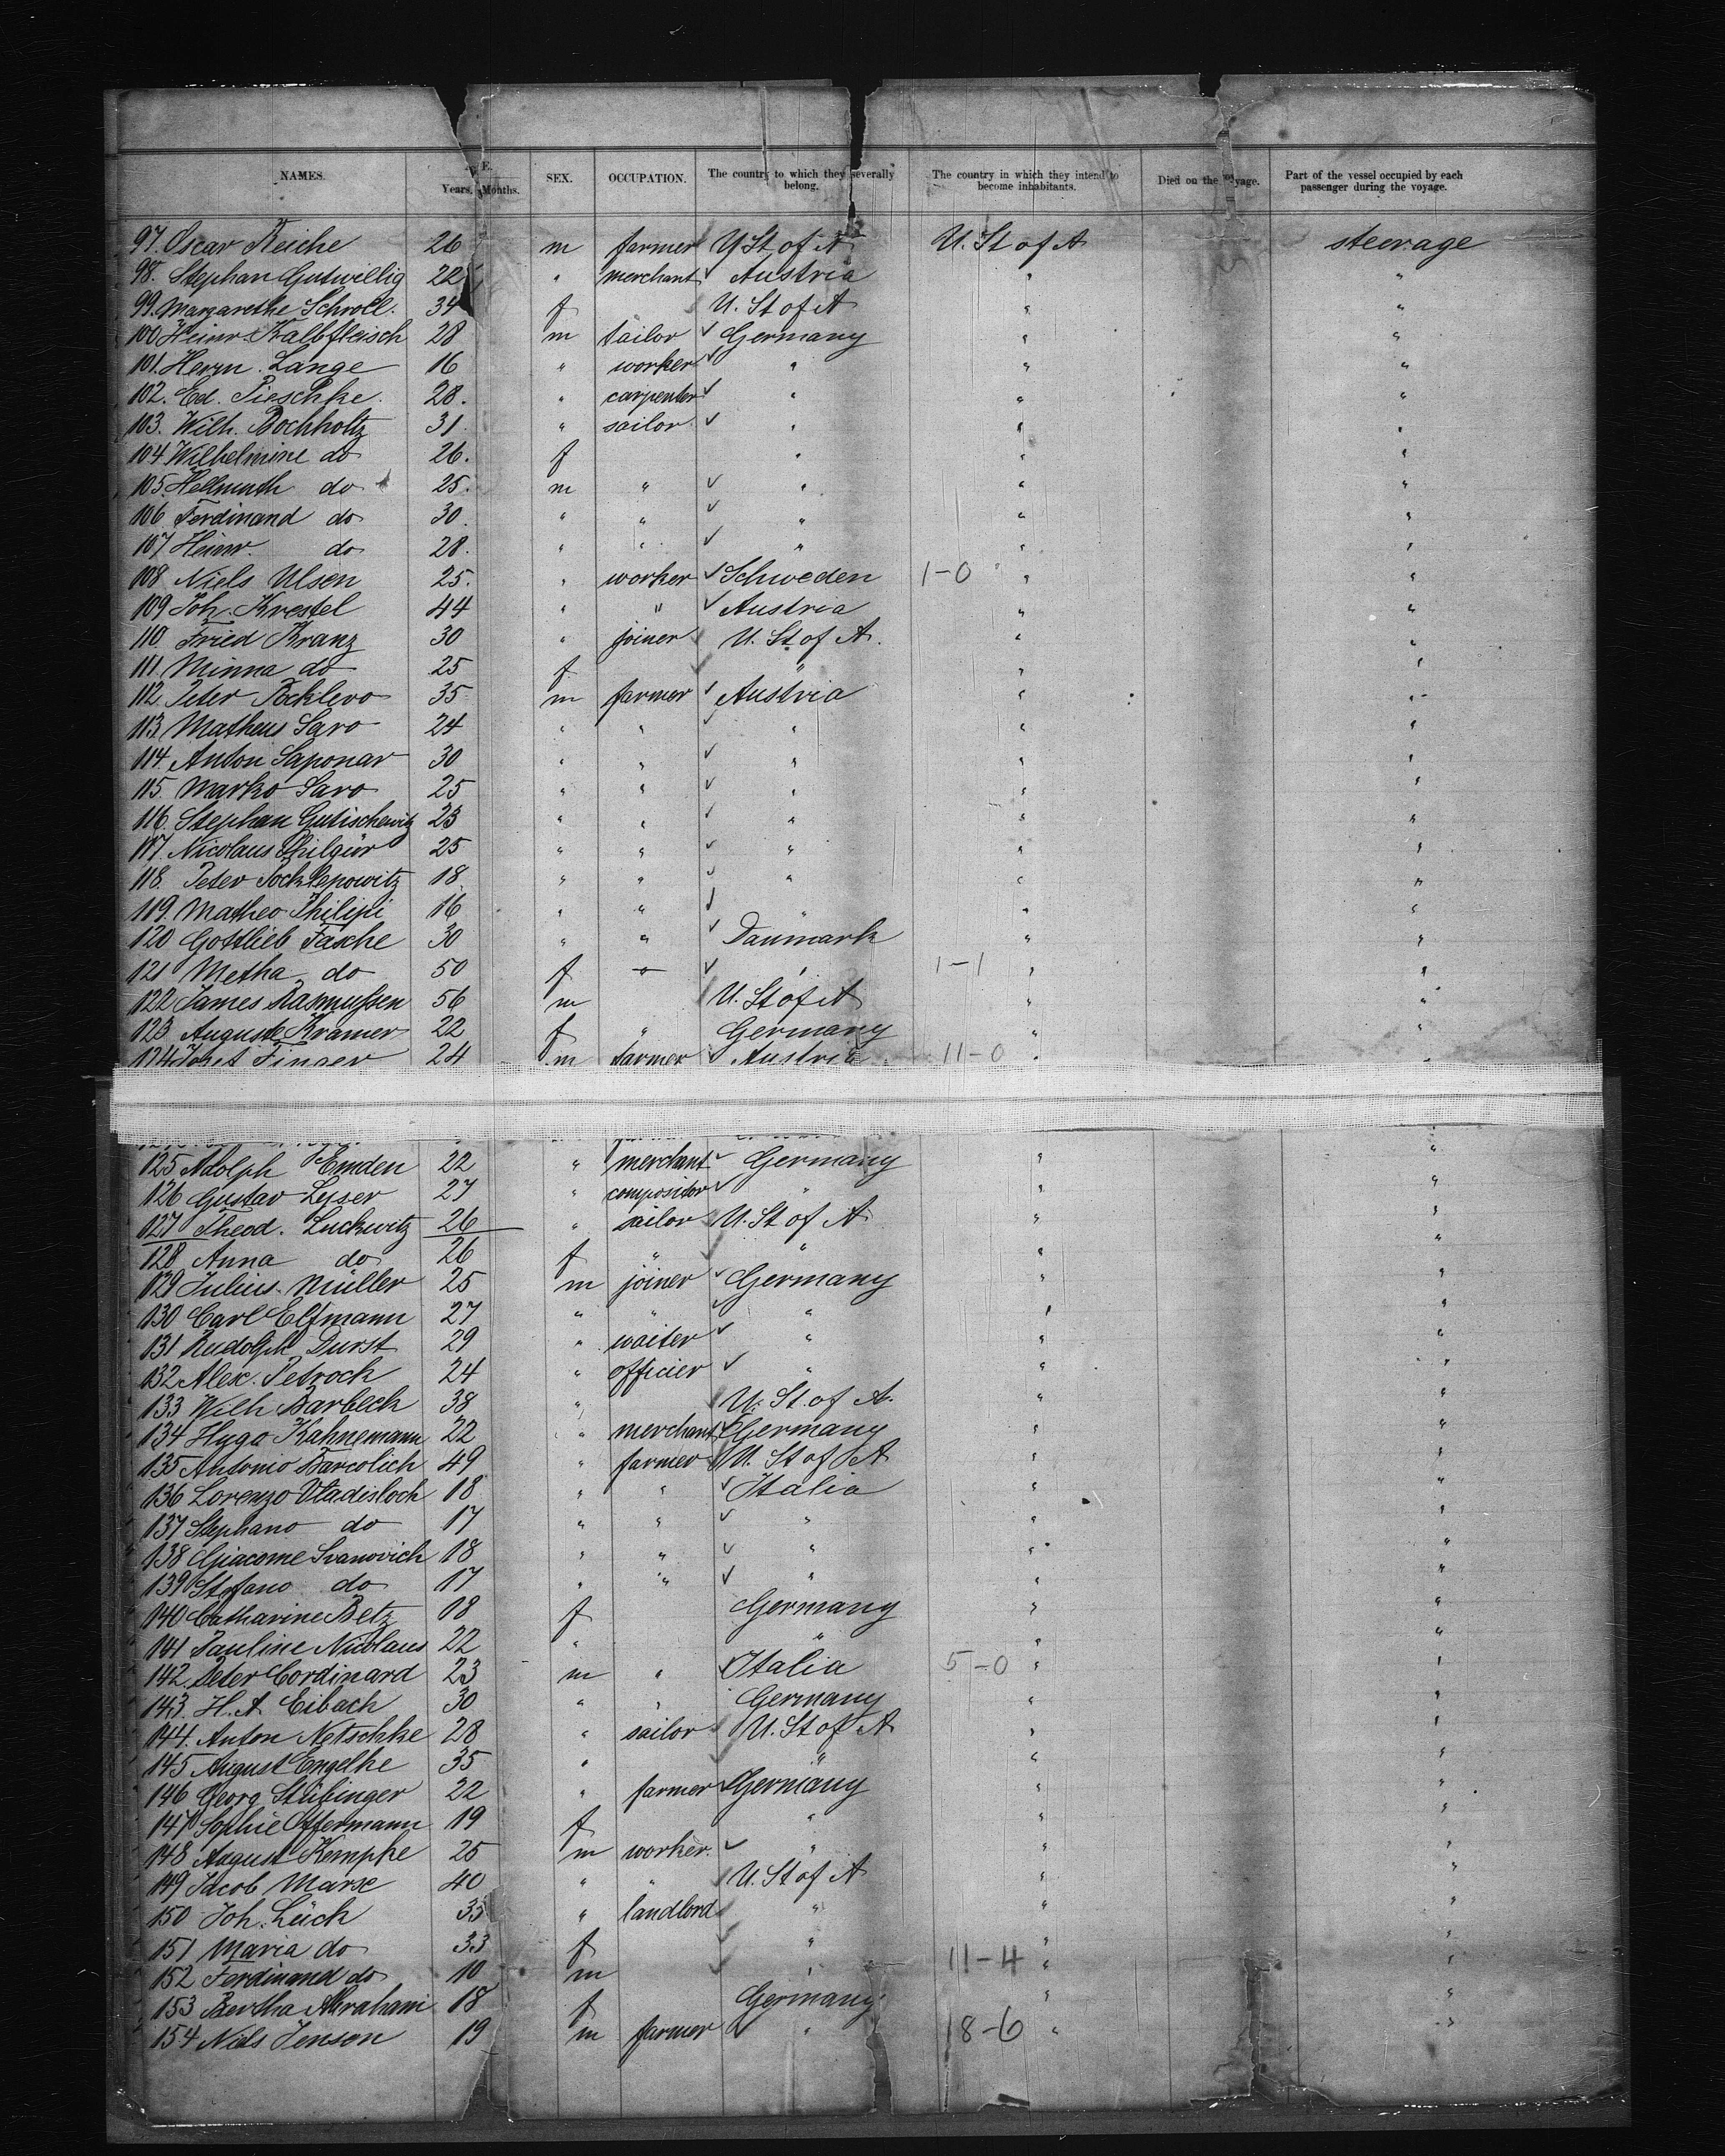 NAMES. Years. Months. SEX. OCCUPATION. The country to which they severally belong. The country in which they intend to become inhabitants. Died on the voyage. Part of the vessel occupied by each passenger during the voyage.
97. Oscar Reiche 26 m farmer U St of A U. St of A steerage
98. Stephan Gutwillig 22 " merchant ✓ Austria " "
99. Margarethe Schroll. 34 f U. St of A " "
100 Heinr. Kalbfleisch 28 m tailor ✓ Germany " "
101. Herm. Lange 16 " worker ✓ " " "
102. Ed. Pieschke. 28. " carpenter ✓ " " "
103. Wilh. Bochholtz 31. " sailor ✓ " " "
104 Wilhelmine do 26. f " " "
105 Hellmuth do 25. m " ✓ " " "
106 Ferdinand do 30. " " ✓ " " "
107 Heinr. do 28. " " ✓ " " "
108 Niels Ulsen 25. " worker ✓ Schweden 1-0 " "
109 Joh. Krestel 44 " " ✓ Austria " "
110. Fried Kranz 30 " joiner U. St of A. " "
111. Minna do 25 f ✓ " " "
112. Peter Pocklevo 35 m farmer ✓ Austria " "
113. Matheus Saro 24 " " ✓ " " "
114. Anton Saponar 30 " " ✓ " " "
115. Marko Saro 25 " " ✓ " " "
116. Stephan Gutischewitz 23 " " ✓ " " "
117. Nicolaus 25 " " ✓ " " "
118. Peter Pocklepowitz 18 " " ✓ " " "
119. Matheo Philipi 16 " " ✓ " " "
120 Gottlieb Fasche 30 " " ✓ Danmark " "
121 Metha do 50 f ✓ " 1-1 " "
122 James Rasmussen 56 m U. St of A " "
123 Auguste Kramer 22 f " Germany " "
124 Josef Finger 24 m farmer ✓ Austria 11-0 " "
125 Adolph Emden 22 " merchant ✓ Germany " "
126 Gustav Lyser 27 " compositor ✓ " " "
127 Theod. Luckwitz 26 " sailor U. St of A " "
128 Anna do 26 f " ✓ " " "
129 Julius Müller 25 m joiner ✓ Germany " "
130 Carl Eltmann 27 " " ✓ " " "
131 Rudolph Durst 29 " waiter ✓ " " "
132 Alex. Petroch 24 " officier ✓ " " "
133 Wilh Barbeck 38 " U. St. of A. " "
134 Hugo Kahnemann 22 " merchant ✓ Germany " "
135 Antonio Barcolich 49 " farmer U. St of A " "
136 Lorenzo Vladisloch 18 " " ✓ Italia " "
137 Stephano do 17 " " ✓ " " "
138 Giacome Ivanovich 18 " " ✓ " " "
139 Stefano do 17 " " ✓ " " "
140 Catharine Betz 18 f Germany " "
141 Pauline Nicolaus 22 " " " "
142. Peter Cordinard 23 m " ✓ Italia 5-0 " "
143. H. A. Eibach 30 " " Germany " "
144. Anton Netschke 28 " sailor U. St of A " "
145 August Engelke 35 " ✓ " " "
146 Georg Stübinger 22 " farmer ✓ Germany " "
147 Sophie Offermann 19 f " " "
148 August Kempke 25 m worker. ✓ " " "
149 Jacob Marx 40 " " U. St of A " "
150 Joh. Lück 35 " landlord " " "
151 Maria do 33 f ✓ " " "
152 Ferdinand do 10 m ✓ " 11-4 " "
153 Bertha Abraham 18 f Germany " "
154 Niels Jenson 19 m farmer ✓ " 18-6 " "